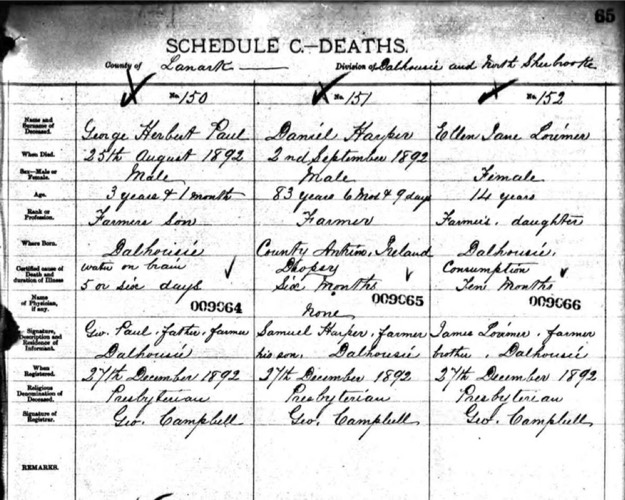 65
SCHEDULE C.—DEATHS.
County of Lanark Division of Dalhousie and North Sherbrooke
No. 150 No. 151 No. 152
Name and Surname of Deceased. George Herbert Paul Daniel Harper Ellen Jane Lorimer
When Died. 25th August 1892 2nd September 1892
Sex—Male or Female. Male Male Female
Age. 3 years & 1 month 83 years 6 Mos & 9 days 14 years
Rank or Profession. Farmers Son Farmer Farmer's daughter
Where Born. Dalhousie County Antrim, Ireland Dalhousie.
Certified cause of Death and duration of Illness water on brain Dropsy Consumption
5 or six days Six Months Ten Months
Name of Physician, if any. 009064 009065 009066
None
Signature, Description and Residence of Informant. Geo. Paul, father, farmer Samuel Harper, farmer James Lorimer, farmer
Dalhousie his son, Dalhousie brother, Dalhousie
When Registered. 27th December 1892 27th December 1892 27th December 1892
Religious Denomination of Deceased. Presbyterian Presbyterian Presbyterian
Signature of Registrar. Geo. Campbell Geo. Campbell Geo. Campbell
REMARKS.